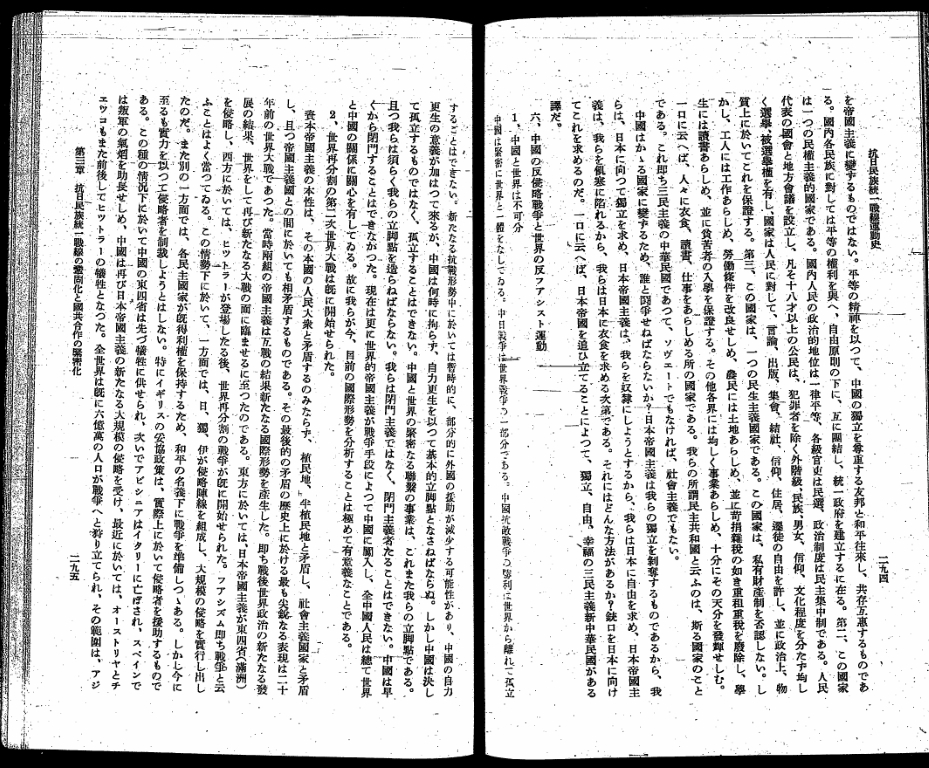 抗日民族統一戰線運動史
一九四
を帝國主義に變ずるものではない。平等の精神を以つて、中國の獨立を尊重する友邦と和平往來し、共存互惠するものであ
る。國內各民族に對しては平等の權利を與へ、自由原則の下に、互に團結し、統一政府を建立するに在る。第二、この國家
は一つの民權主義的國家である。國內人民の政治的地位は一律平等、各級官吏は民選、政治制度は民主集中制である。人民
代表の國會と地方會議を設立し、凡そ十八才以上の公民は、犯罪者を除く外階級、民族、男女、信仰、文化程度を分たず均し
く選擧、被選擧權を有し、國家は人民に對して、言論、出版、集會、結社、信仰、住居、遷徙の自由を許し、並に政治上、物
質上に於いてこれを保證する。第三、この國家は、一つの民生主義國家である。この國家は、私有財產制を否認しない。し
かし、工人には工作あらしめ、勞働條件を改良せしめ、農民には土地あらしめ、並に苛捐雜稅の如き重租重稅を廢除し、學
生には讀書あらしめ、並に貧苦者の入學を保證する。その他各界には均しく事業あらしめ、十分にその天分を發揮せしむ。
一口に云へば、人々に衣食、讀書、仕事をあらしめる所の國家である。我らの所謂民主共和國と云ふのは、斯る國家のこと
である。これ卽ち三民主義の中華民國であつて、ソヴエートでもなければ、社會主義でもない。
中國はかゝる國家に變ずるため、誰と鬪爭せねばならないか?日本帝國主義は我らの獨立を剝奪するものであるから、我
らは、日本に向つて獨立を求め、日本帝國主義は、我らを奴隸にしようとするから、我らは日本に自由を求め、日本帝國主
義は、我らを飢寒に陷れるから、我らは日本に衣食を求める次第である。それにはどんな方法があるか?鋏口を日本に向け
てこれを求めるのだ。一口に云へば、日本帝國を追ひ立てることによつて、獨立、自由、幸福の三民主義新中華民國がある
譯だ。
六、中國の反侵略戰爭と世界の反フアシスト運動
1、中國と世界は不可分
中國は緊密に世界と一體をなしてゐる。中日戰爭は世界戰爭の一部分である。中國抗敵戰爭の勝利は世界から離れて孤立
することはできない。新たなる抗戰形勢中に於いては暫時的に、部分的に外國の援助が減少する可能性があり、中國の自力
更生の意義が加はつて來るが、中國は何時に拘らず、自力更生を以つて基本的立脚點となさねばならぬ。しかし中國は決し
て孤立するものではなく、孤立することはできない。中國と世界の緊密なる聯繫の事業は、これまた我らの立脚點である。
且つ我らは須らく我らの立脚點を造らねばならない。我らは閉門主義ではなく、閉門主義者たることはできない。中國は早
くから閉門することはできなかつた。現在は更に世界的帝國主義が戰爭手段によつて中國に闖入し、全中國人民は總て世界
と中國の關係に關心を有してゐる。故に我らが今、目前の國際形勢を分析することは極めて有意義なことである。
2、世界再分割の第二次世界大戰は既に開始せられた。
資本帝國主義の本性は、その本國の人民大衆と矛盾するのみならず、植民地、半植民地と矛盾し、社會主義國家と矛盾
し、且つ帝國主義國との間に於いても相矛盾するものである。その最後的の矛盾の歷史上に於ける最も尖銳なる表現は二十
年前の世界大戰であつた。當時兩組の帝國主義は互戰の結果新たなる國際形勢を產生した。卽ち戰後世界政治の新たなる發
展の結果、世界をして再び新たなる大戰の面に臨ませるに至つたのである。東方に於いては、日本帝國主義が東四省(滿洲)
を侵略し、西方に於いては、ヒツトラーが登場したる後、世界再分割の戰爭が既に開始せられた。フアシズム卽ち戰爭と云
ふことはよく當つてゐる。この情勢下に於いて、一方面では、日、獨、伊が侵略陣線を組成し、大規模の侵略を實行し出し
たのだ。また別の一方面では、各民主國家が既得利權を保持するため、和平の名義下に戰爭を準備しつゝある。しかし今に
至るも實力を以つて侵略者を制裁しようとはしない。特にイギリスの妥協政策は、實際上に於いて侵略者を援助するもので
ある。この種の情況下に於いて中國の東四省は先づ犧牲に供せられ、次いでアビシニアはイタリーに亡ぼされ、スペインで
は叛軍の氣焰を助長せしめ、中國は再び日本帝國主義の新たなる大規模の侵略を受け、最近に於いては、オーストリヤとチ
エツコもまた前後してヒツトラーの犧牲となつた。全世界は既に六億萬の人口が戰爭へと狩り立てられ、その範圍は、アジ
第三章 抗日民族統一戰線の鞏固化と國共合作の緊密化
一九五